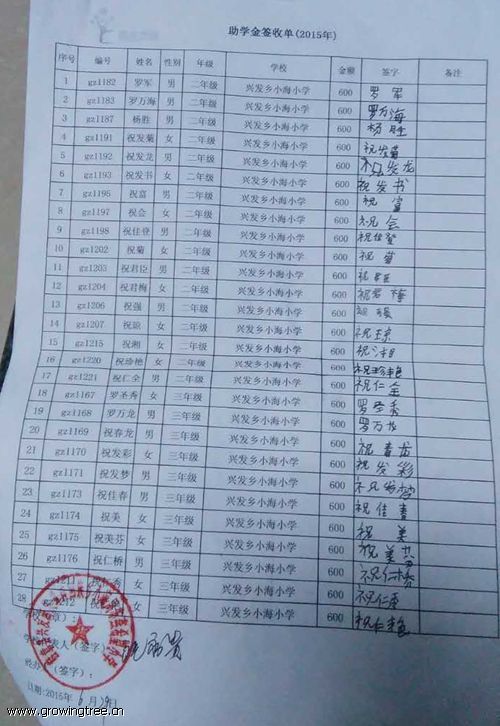 助学金签收单(2015年)
序号 编号 姓名 性别 年级 学校 金额 签字 备注
1 gz1182 罗军 男 二年级 兴发乡小海小学 600 罗军
2 gz1183 罗万海 男 二年级 兴发乡小海小学 600 罗万海
3 gz1187 杨胜 男 二年级 兴发乡小海小学 600 杨胜
4 gz1191 祝发菊 女 二年级 兴发乡小海小学 600 祝发菊
5 gz1192 祝发龙 男 二年级 兴发乡小海小学 600 祝发龙
6 gz1193 祝发书 女 二年级 兴发乡小海小学 600 祝发书
7 gz1195 祝富 男 二年级 兴发乡小海小学 600 祝富
8 gz1197 祝会 女 二年级 兴发乡小海小学 600 祝会
9 gz1198 祝佳登 男 二年级 兴发乡小海小学 600 祝佳登
10 gz1202 祝菊 女 二年级 兴发乡小海小学 600 祝菊
11 gz1203 祝君臣 男 二年级 兴发乡小海小学 600
12 gz1204 祝君梅 女 二年级 兴发乡小海小学 600 祝君梅
13 gz1206 祝强 男 二年级 兴发乡小海小学 600
14 gz1207 祝琼 女 二年级 兴发乡小海小学 600 祝琼
15 gz1215 祝湘 女 二年级 兴发乡小海小学 600 祝湘
16 gz1220 祝珍艳 女 二年级 兴发乡小海小学 600 祝珍艳
17 gz1221 祝仁全 男 二年级 兴发乡小海小学 600 祝仁全
18 gz1167 罗圣秀 女 三年级 兴发乡小海小学 600 罗圣秀
19 gz1168 罗万龙 男 三年级 兴发乡小海小学 600 罗万龙
20 gz1169 祝春龙 男 三年级 兴发乡小海小学 600 祝春龙
21 gz1170 祝发彩 女 三年级 兴发乡小海小学 600 祝发彩
22 gz1171 祝发梦 男 三年级 兴发乡小海小学 600 祝发梦
23 gz1173 祝佳春 男 三年级 兴发乡小海小学 600 祝佳春
24 gz1174 祝美 女 三年级 兴发乡小海小学 600 祝美
25 gz1175 祝美芬 女 三年级 兴发乡小海小学 600 祝美芬
26 gz1176 祝仁桥 男 三年级 兴发乡小海小学 600 祝仁桥
27 秀 女 三年级 兴发乡小海小学 600 祝仁秀
28 女 三年级 兴发乡小海小学 600 祝仁艳
表人(签字):
经办 (签字):
日期:2015年6月19日
www.growingtree.cn